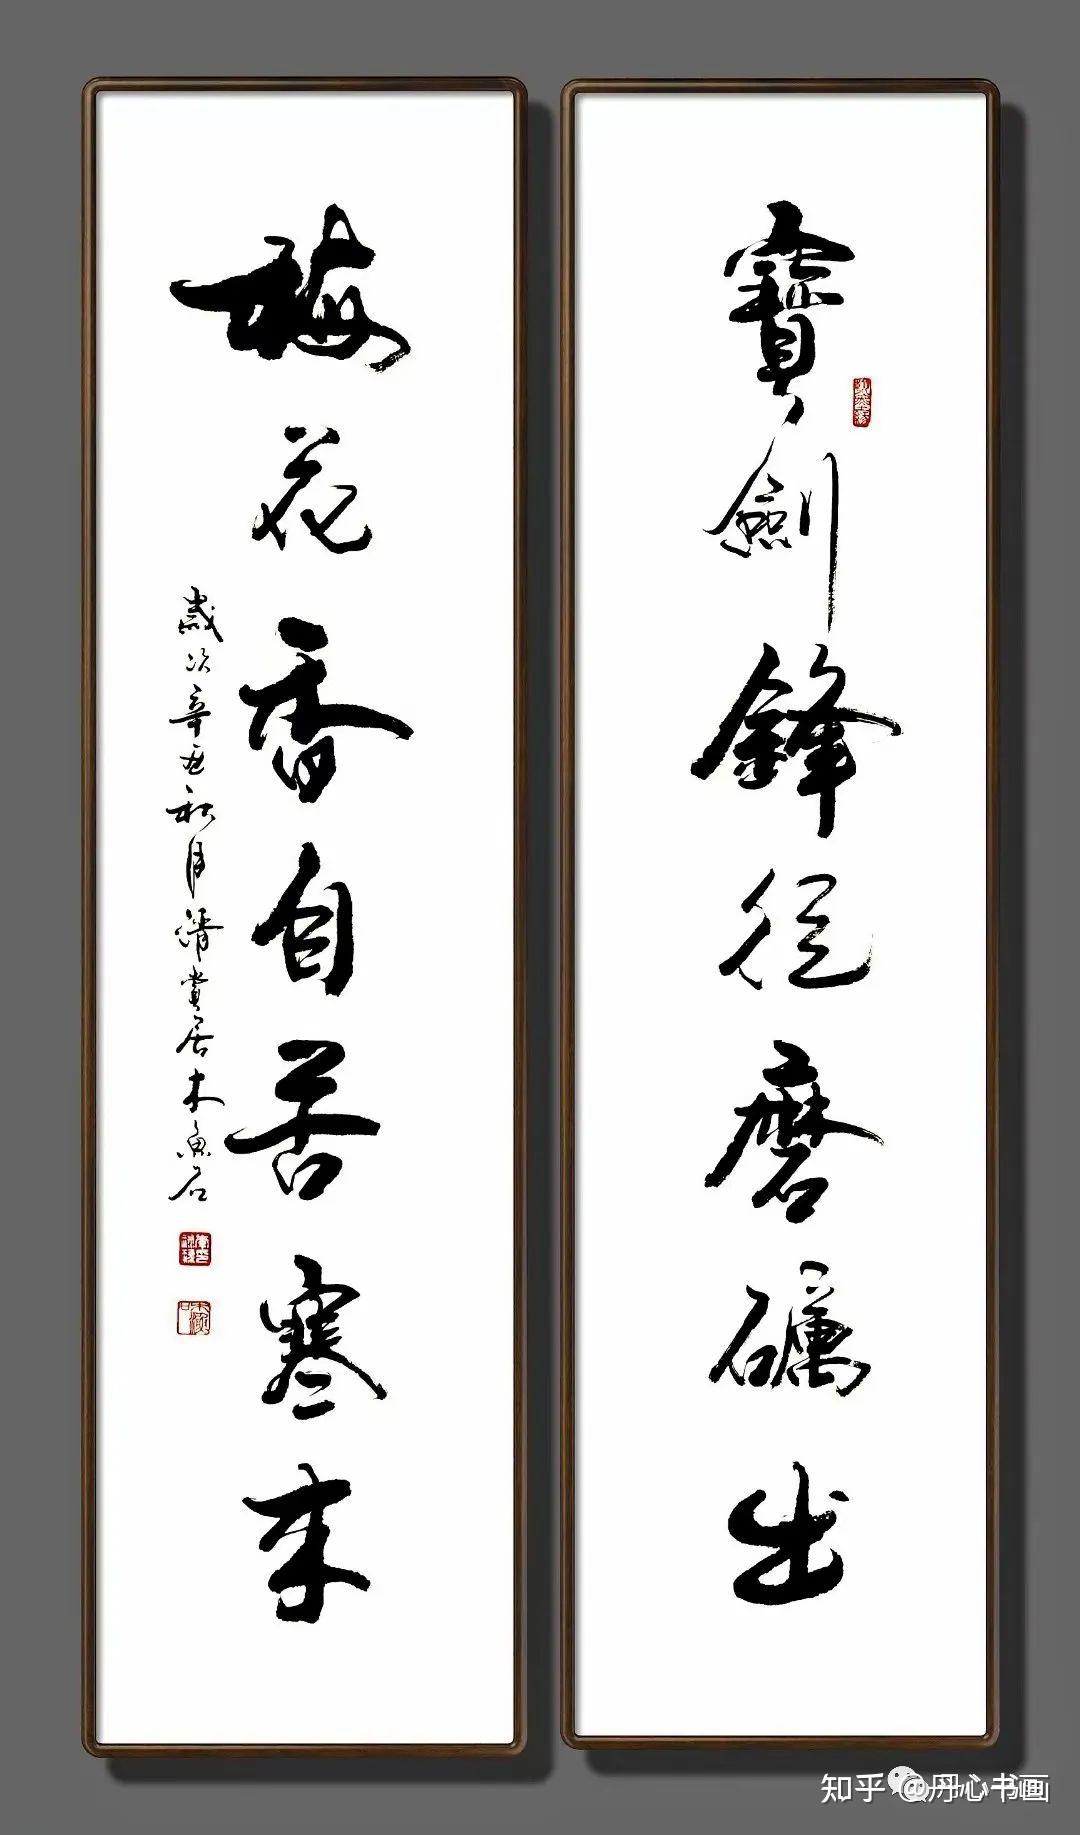 寶劍鋒從磨礪出
梅花香自苦寒來
歲次辛丑秋月清賞居木魚石
知乎 @丹心书画